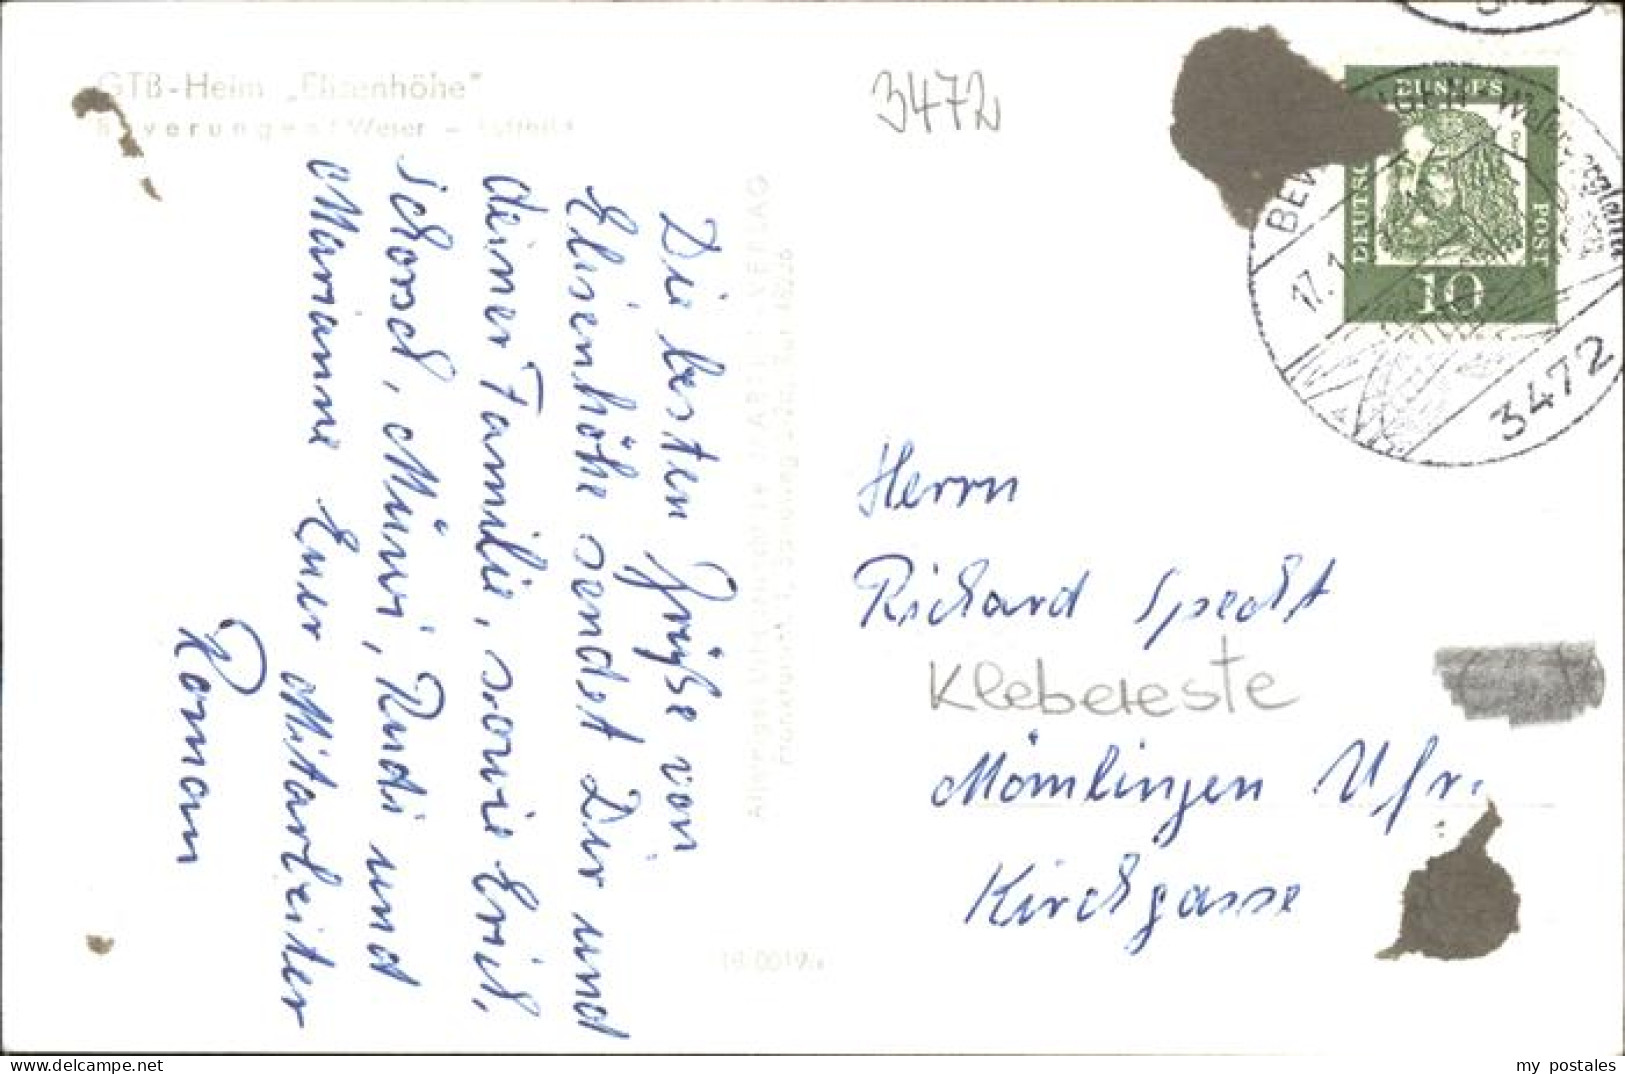 GTB-Heim „Elisenhöhe"
Beverungen / Weser - Luftbild
3472
Die besten Grüße von
Elisenhöhe sendet Dir und
deiner Familie, sowie Erich,
schorsch, Müni, Rudi und
Marianne Euer Mitarbeiter
Roman
DEUTSCHE BUNDESPOST
10
17.1
3472
Herrn
Richard Specht
Klebereste
Mömlingen Ufr.
Kirchgasse
my postales